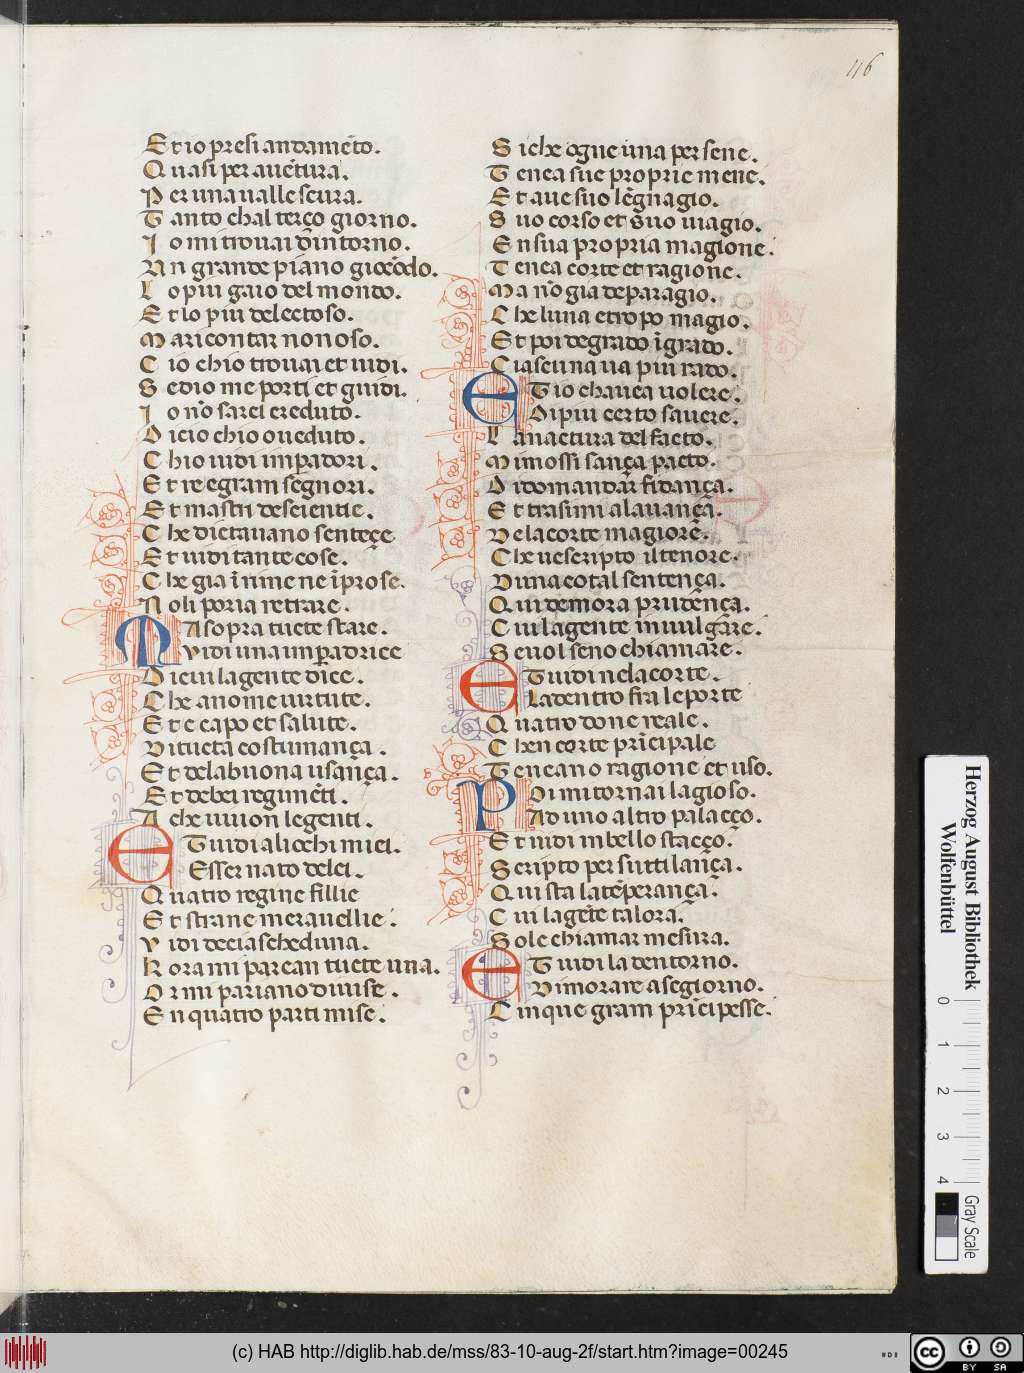 116
Et io presi andamẽto.
Quasi per auẽtura.
Per una ualle scura.
Tanto chal terço giorno.
Io mi trouai dĩntorno.
Un grande piano giocõdo.
Lo piu gaio del mondo.
Et lo piu delectoso.
Ma ricontar non oso.
Cio chio trouai et uidi.
Se dio me porti et guidi.
Io nõ sarei creduto.
Di cio chio o ueduto.
Chio uidi imperadori.
Et re e gram segnori.
Et mastri de scientie.
Che dictauano sentẽçe
Et uidi tante cose.
Che gia ĩ rime ne ĩ prose.
Noli poria retrare.
MA sopra tucte stare.
Vidi una imperadrice
Di cui la gente dice.
Che a nome uirtute.
Et e capo et salute.
Di tucta costumança.
Et dela buona usança.
Et de bei regimẽti.
A che uiuon le genti.
ET uidi ali ochi miei.
Esser nato de lei.
Quatro regine fillie
Et strane merauellie.
Vidi deciascheduna.
Kora mi parean tucte una.
Or mi pariano diuise.
En quatro parti mise.
Siche ogne una per sene.
Tenea sue proprie mene.
Et aue suo lẽgnagio.
Suo corso et suo uiagio.
En sua propria magione.
Tenea corte et ragione.
Ma nõ gia de paragio.
Che luna e tropo magio.
Et poi de grado ĩ grado.
Ciascuna ua piu rado.
ET io chauea uolere.
Di piu certo sauere.
La nactura del facto.
Mi mossi sança pacto.
Di domandar fidança.
Et trasimi alauança.
Dela corte magiore.
Che ue scripto il tenore.
Duna cotal sentença.
Qui demora prudẽnça.
Cui la gente in uulgare.
Seuol seno chiamare.
ET uidi ne la corte.
La dentro fra le porte
Quatro done reale.
Chen corte principale
Teneano ragione et uso.
POi mi tornai lagioso.
Ad uno altro palaçço.
Et uidi in bello staçço.
Scripto per sutti lança.
Qui sta la tẽperança.
Cui la gẽte talora.
Sole chiamar mesura.
ET uidi la dentorno.
Dimorare a segiorno.
Cinque gram principesse.
Herzog August Bibliothek
Wolfenbüttel
0 1 2 3 4
Gray Scale
(c) HAB http://diglib.hab.de/mss/83-10-aug-2f/start.htm?image=00245
cc BY SA